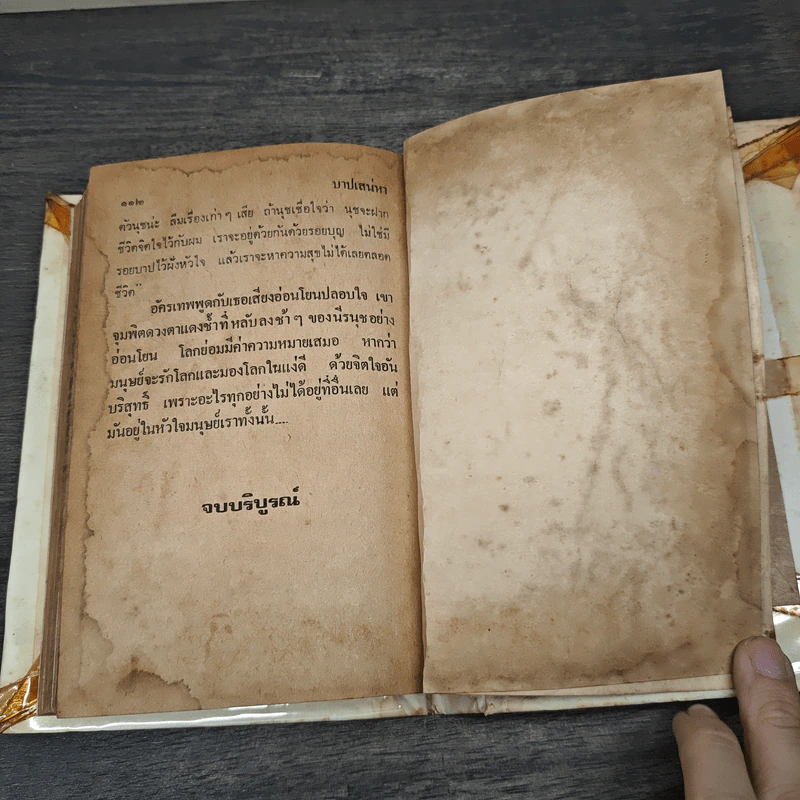 ๑๑๒
บาปเสน่หา
ตัวนุชน่ะ ลืมเรื่องเก่า ๆ เสีย ถ้านุชเชื่อใจว่า นุชจะฝาก
ชีวิตจิตใจไว้กับผม เราจะอยู่ด้วยกันด้วยรอยบุญ ไม่ใช่มี
รอยบาปไว้ฝังหัวใจ แล้วเราจะหาความสุขไม่ได้เลยตลอด
ชีวิต"
อัครเทพพูดกับเธอเสียงอ่อนโยนปลอบใจ เขา
จุมพิตดวงตาแดงช้ำที่หลับลงช้า ๆ ของนีรนุชอย่าง
อ่อนโยน โลกย่อมมีค่าความหมายเสมอ หากว่า
มนุษย์จะรักโลกและมองโลกในแง่ดี ด้วยจิตใจอัน
บริสุทธิ์ เพราะอะไรทุกอย่างไม่ได้อยู่ที่อื่นเลย แต่
มันอยู่ในหัวใจมนุษย์เราทั้งนั้น....
จบบริบูรณ์